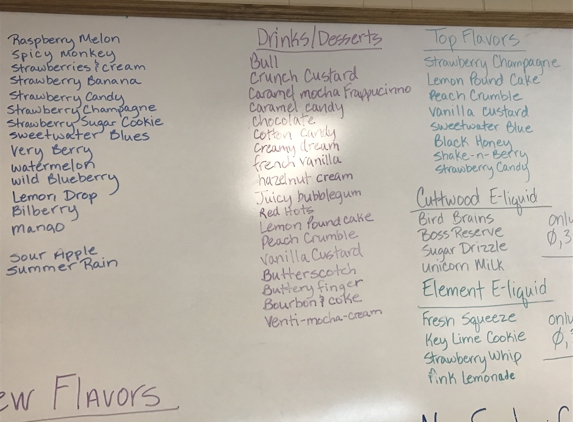 Raspberry Melon
Spicy Monkey
Strawberries & cream
Strawberry Banana
Strawberry Candy
Strawberry Champagne
Strawberry Sugar Cookie
sweetwater Blues
Very Berry
watermelon
wild Blueberry
Lemon Drop
Bilberry
Mango
Sour Apple
Summer Rain
Drinks/Desserts
Bull
Crunch Custard
Caramel mocha Frappucinno
Caramel candy
Chocolate
Cotton Candy
Creamy dream
french vanilla
hazelnut cream
Juicy bubblegum
Red Hots
Lemon Pound cake
Peach Crumble
Vanilla Custard
Butterscotch
Buttery finger
Bourbon & coke
Venti-mocha-cream
Top Flavors
Strawberry Champagne
Lemon Pound Cake
Peach Crumble
Vanilla Custard
Sweetwater Blue
Black Honey
Shake-n-Berry
Strawberry Candy
Cuttwood E-liquid
Bird Brains
Boss Reserve
Sugar Drizzle
Unicorn Milk
only
0,3
Element E-liquid
Fresh Squeeze
Key Lime Cookie
Strawberry Whip
Pink Lemonade
only
0,
ew Flavors